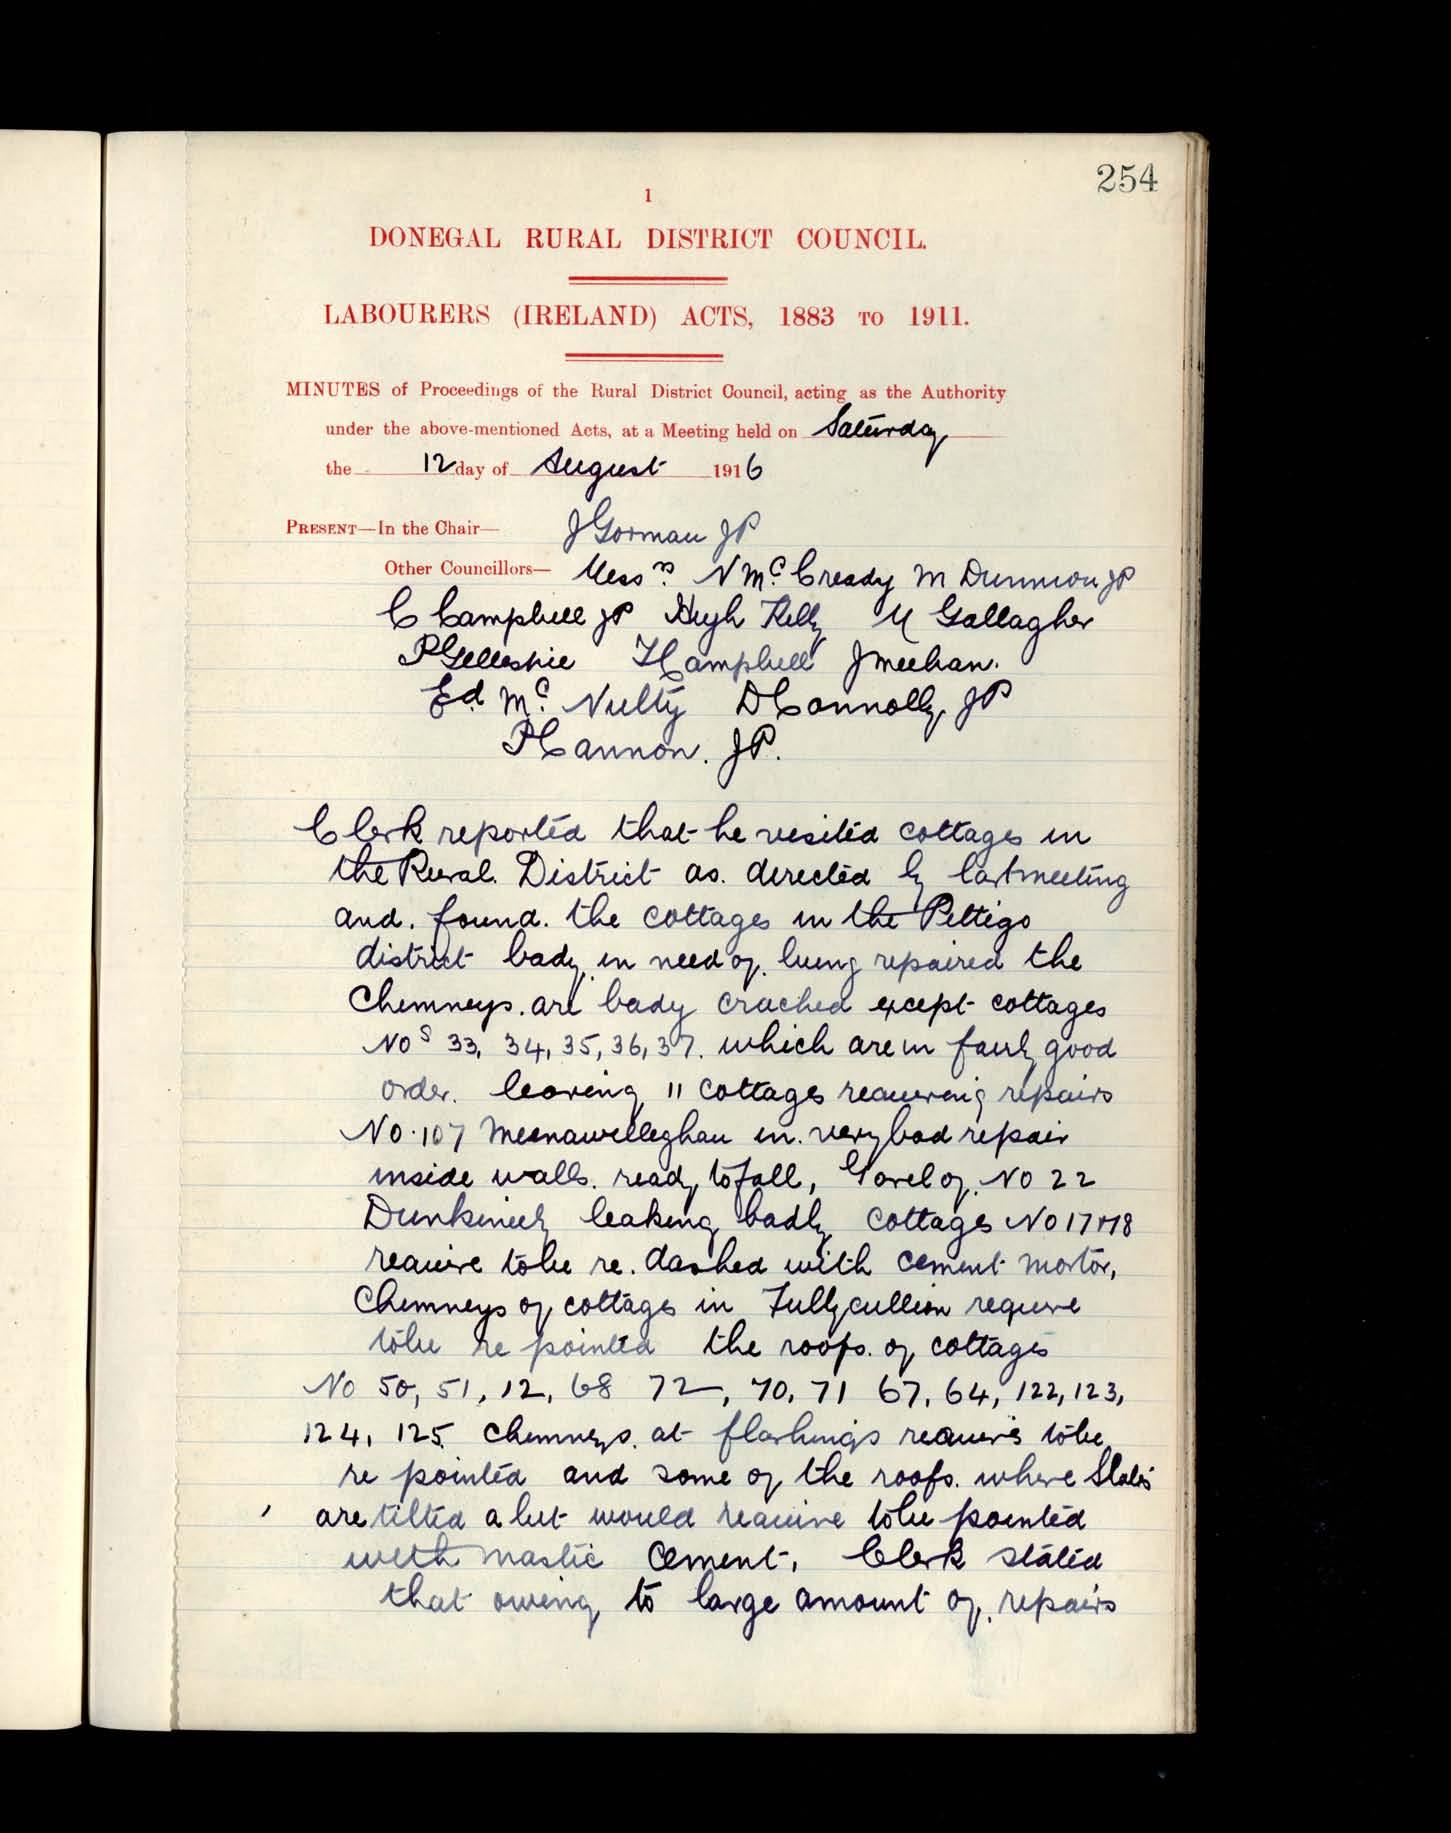 254
1
DONEGAL RURAL DISTRICT COUNCIL.
LABOURERS (IRELAND) ACTS, 1883 TO 1911.
MINUTES of Proceedings of the Rural District Council, acting as the Authority
under the above-mentioned Acts, at a Meeting held on Saturday
the 12 day of August 1916
PRESENT—In the Chair— J Gorman JP
Other Councillors— Messrs N McCready M Dunnion JP
C Campbell JP Hugh Kelly M Gallagher
P Gelleshie H Campbell J Meehan.
Ed. Mc. Nulty D Connolly JP
P Cannon. JP.
Clerk reported that he visited cottages in
the Rural. District as. directed by last meeting
and. found. the cottages in the Pettigo
district bady in need of. being repaired the
Chimneys. are bady cracked except cottages
Nos 33, 34, 35, 36, 37. which are in fairly good
order. leaving 11 cottages requiring repairs
No. 107 in. very bad repair
inside walls. ready to fall, Gavel of. No 22
Dunkineely leaking badly cottages No 17 + 18
require to be re. dashed with cement mortor,
Chimneys of cottages in Tullycullion require
to be re pointed the roofs. of cottages
No 50, 51, 12, 68 72, 70, 71 67, 64, 122, 123,
124, 125. Chimneys. at flashings require to be
re pointed and some of the roofs. where Slates
are tilted a bit would require to be pointed
with mastic cement. Clerk stated
that owing to large amount of. repairs